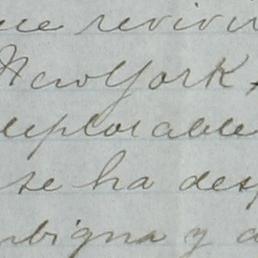 ue revivir
New York.
deplorable
se ha desp
mbigua y a